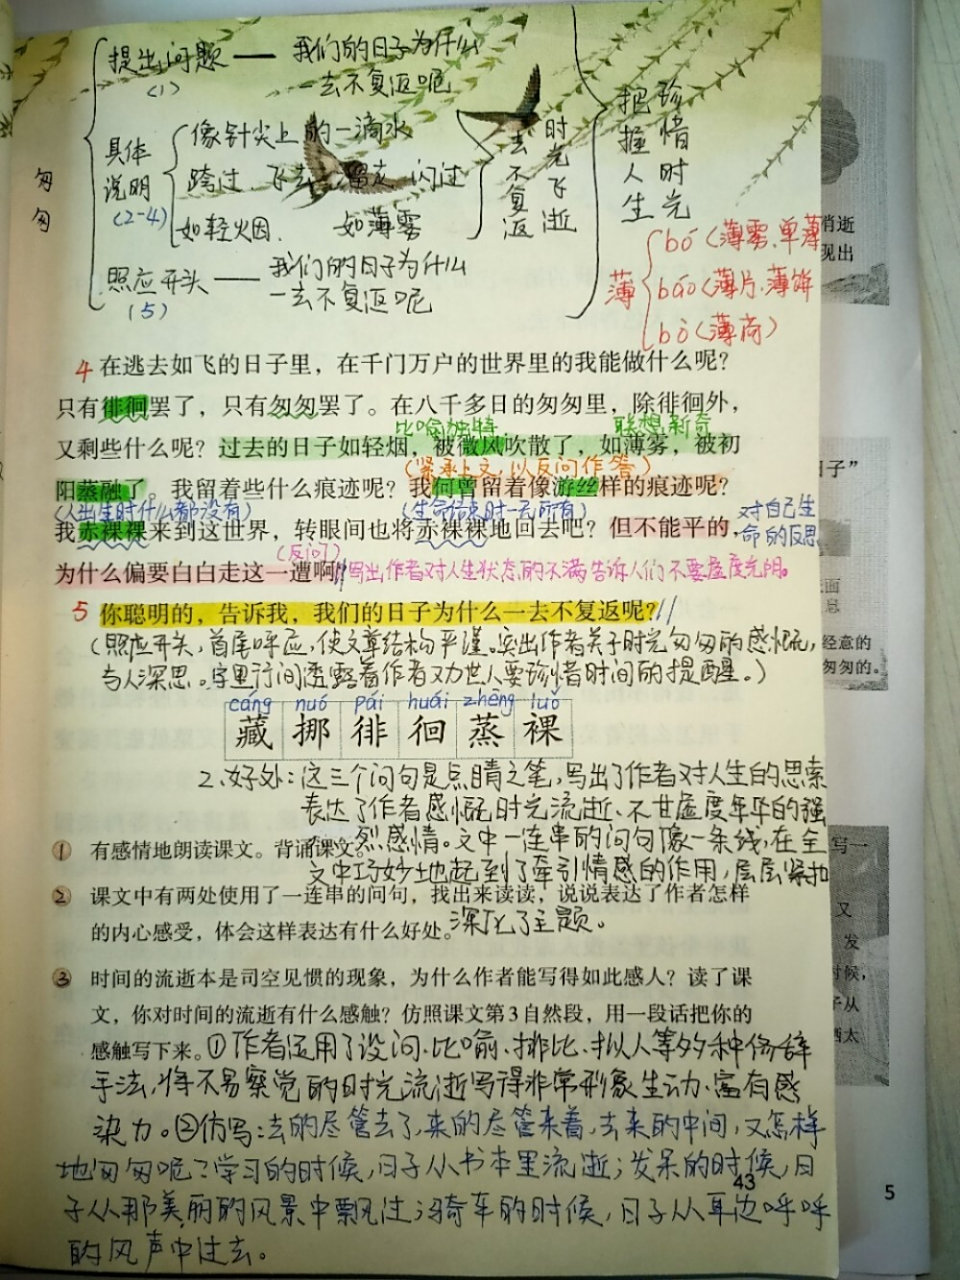 提出问题 —— 我们的日子为什么
(1) 一去不复返呢
匆匆
具体说明
(2-4)
像针尖上的一滴水
跨过、飞去、溜走、闪过
如轻烟、如薄雾
时光飞逝
去不复返
珍惜时光
把握人生
照应开头 —— 我们的日子为什么
(5) 一去不复返呢
薄
bó(薄雾、单薄
báo(薄片、薄饼
bò(薄荷)
4 在逃去如飞的日子里，在千门万户的世界里的我能做什么呢？
只有徘徊罢了，只有匆匆罢了。在八千多日的匆匆里，除徘徊外，
比喻独特 联想新奇
又剩些什么呢？过去的日子如轻烟，被微风吹散了，如薄雾，被初
(紧承上文，以反问作答)
阳蒸融了。我留着些什么痕迹呢？我何曾留着像游丝样的痕迹呢？
(人出生时什么都没有) (生命结束时一无所有) 对自己生
我赤裸裸来到这世界，转眼间也将赤裸裸地回去吧？但不能平的，
命的反思
(反问)
为什么偏要白白走这一遭啊？写出作者对人生状态的不满告诉人们不要虚度光阴。
5 你聪明的，告诉我，我们的日子为什么一去不复返呢？
(照应开头，首尾呼应，使文章结构严谨。突出作者关于时光匆匆的感慨，
与人深思。字里行间透露着作者对世人要珍惜时间的提醒。)
cáng nuó pái huái zhēng luǒ
藏 挪 徘 徊 蒸 裸
2、好处：这三个问句是点睛之笔，写出了作者对人生的思索
表达了作者感慨时光流逝、不甘虚度年华的强
烈感情。文中一连串的问句像一条线，在全
① 有感情地朗读课文。背诵课文。
文中巧妙地起到了牵引情感的作用，层层紧扣
② 课文中有两处使用了一连串的问句，找出来读读，说说表达了作者怎样
的内心感受，体会这样表达有什么好处。深化了主题。
③ 时间的流逝本是司空见惯的现象，为什么作者能写得如此感人？读了课
文，你对时间的流逝有什么感触？仿照课文第3自然段，用一段话把你的
感触写下来。①作者运用了设问、比喻、排比、拟人等多种修辞
手法，将不易察觉的时光流逝写得非常形象生动、富有感
染力。②仿写：去的尽管去了，来的尽管来着，去来的中间，又怎样
地匆匆呢？学习的时候，日子从书本里流逝；发呆的时候，日
43
子从那美丽的风景中飘过；骑车的时候，日子从耳边呼呼
的风声中过去。
消逝
现出
日子”
上面
息
经意的
匆匆的。
写一
又
发
时候，
子从
酒太
5